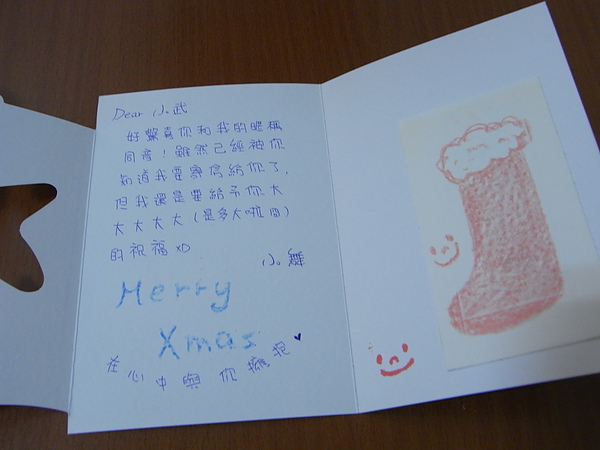 Dear 小武
好驚喜你和我的暱稱
同音！雖然已經被你
知道我要寫信給你了，
但我還是要給予你大
大大大大（是多大啦囧）
的祝福xD
小舞
Merry
Xmas
在心中與你擁抱♥